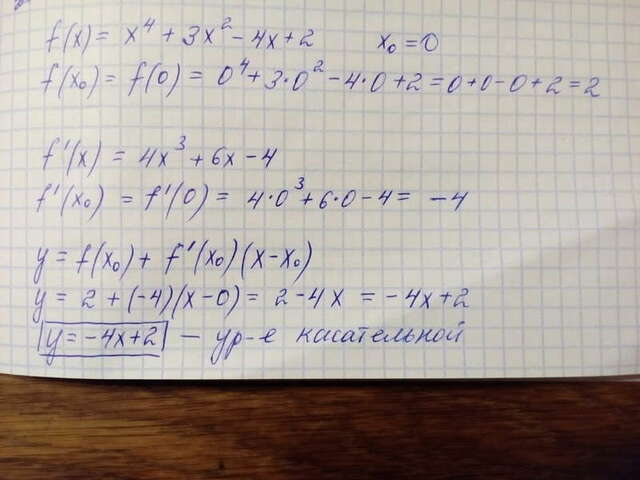 f(x) = x⁴ + 3x² - 4x + 2 x₀ = 0
f(x₀) = f(0) = 0⁴ + 3·0² - 4·0 + 2 = 0 + 0 - 0 + 2 = 2
f'(x) = 4x³ + 6x - 4
f'(x₀) = f'(0) = 4·0³ + 6·0 - 4 = -4
y = f(x₀) + f'(x₀)(x - x₀)
y = 2 + (-4)(x - 0) = 2 - 4x = -4x + 2
y = -4x + 2 — ур-е касательной